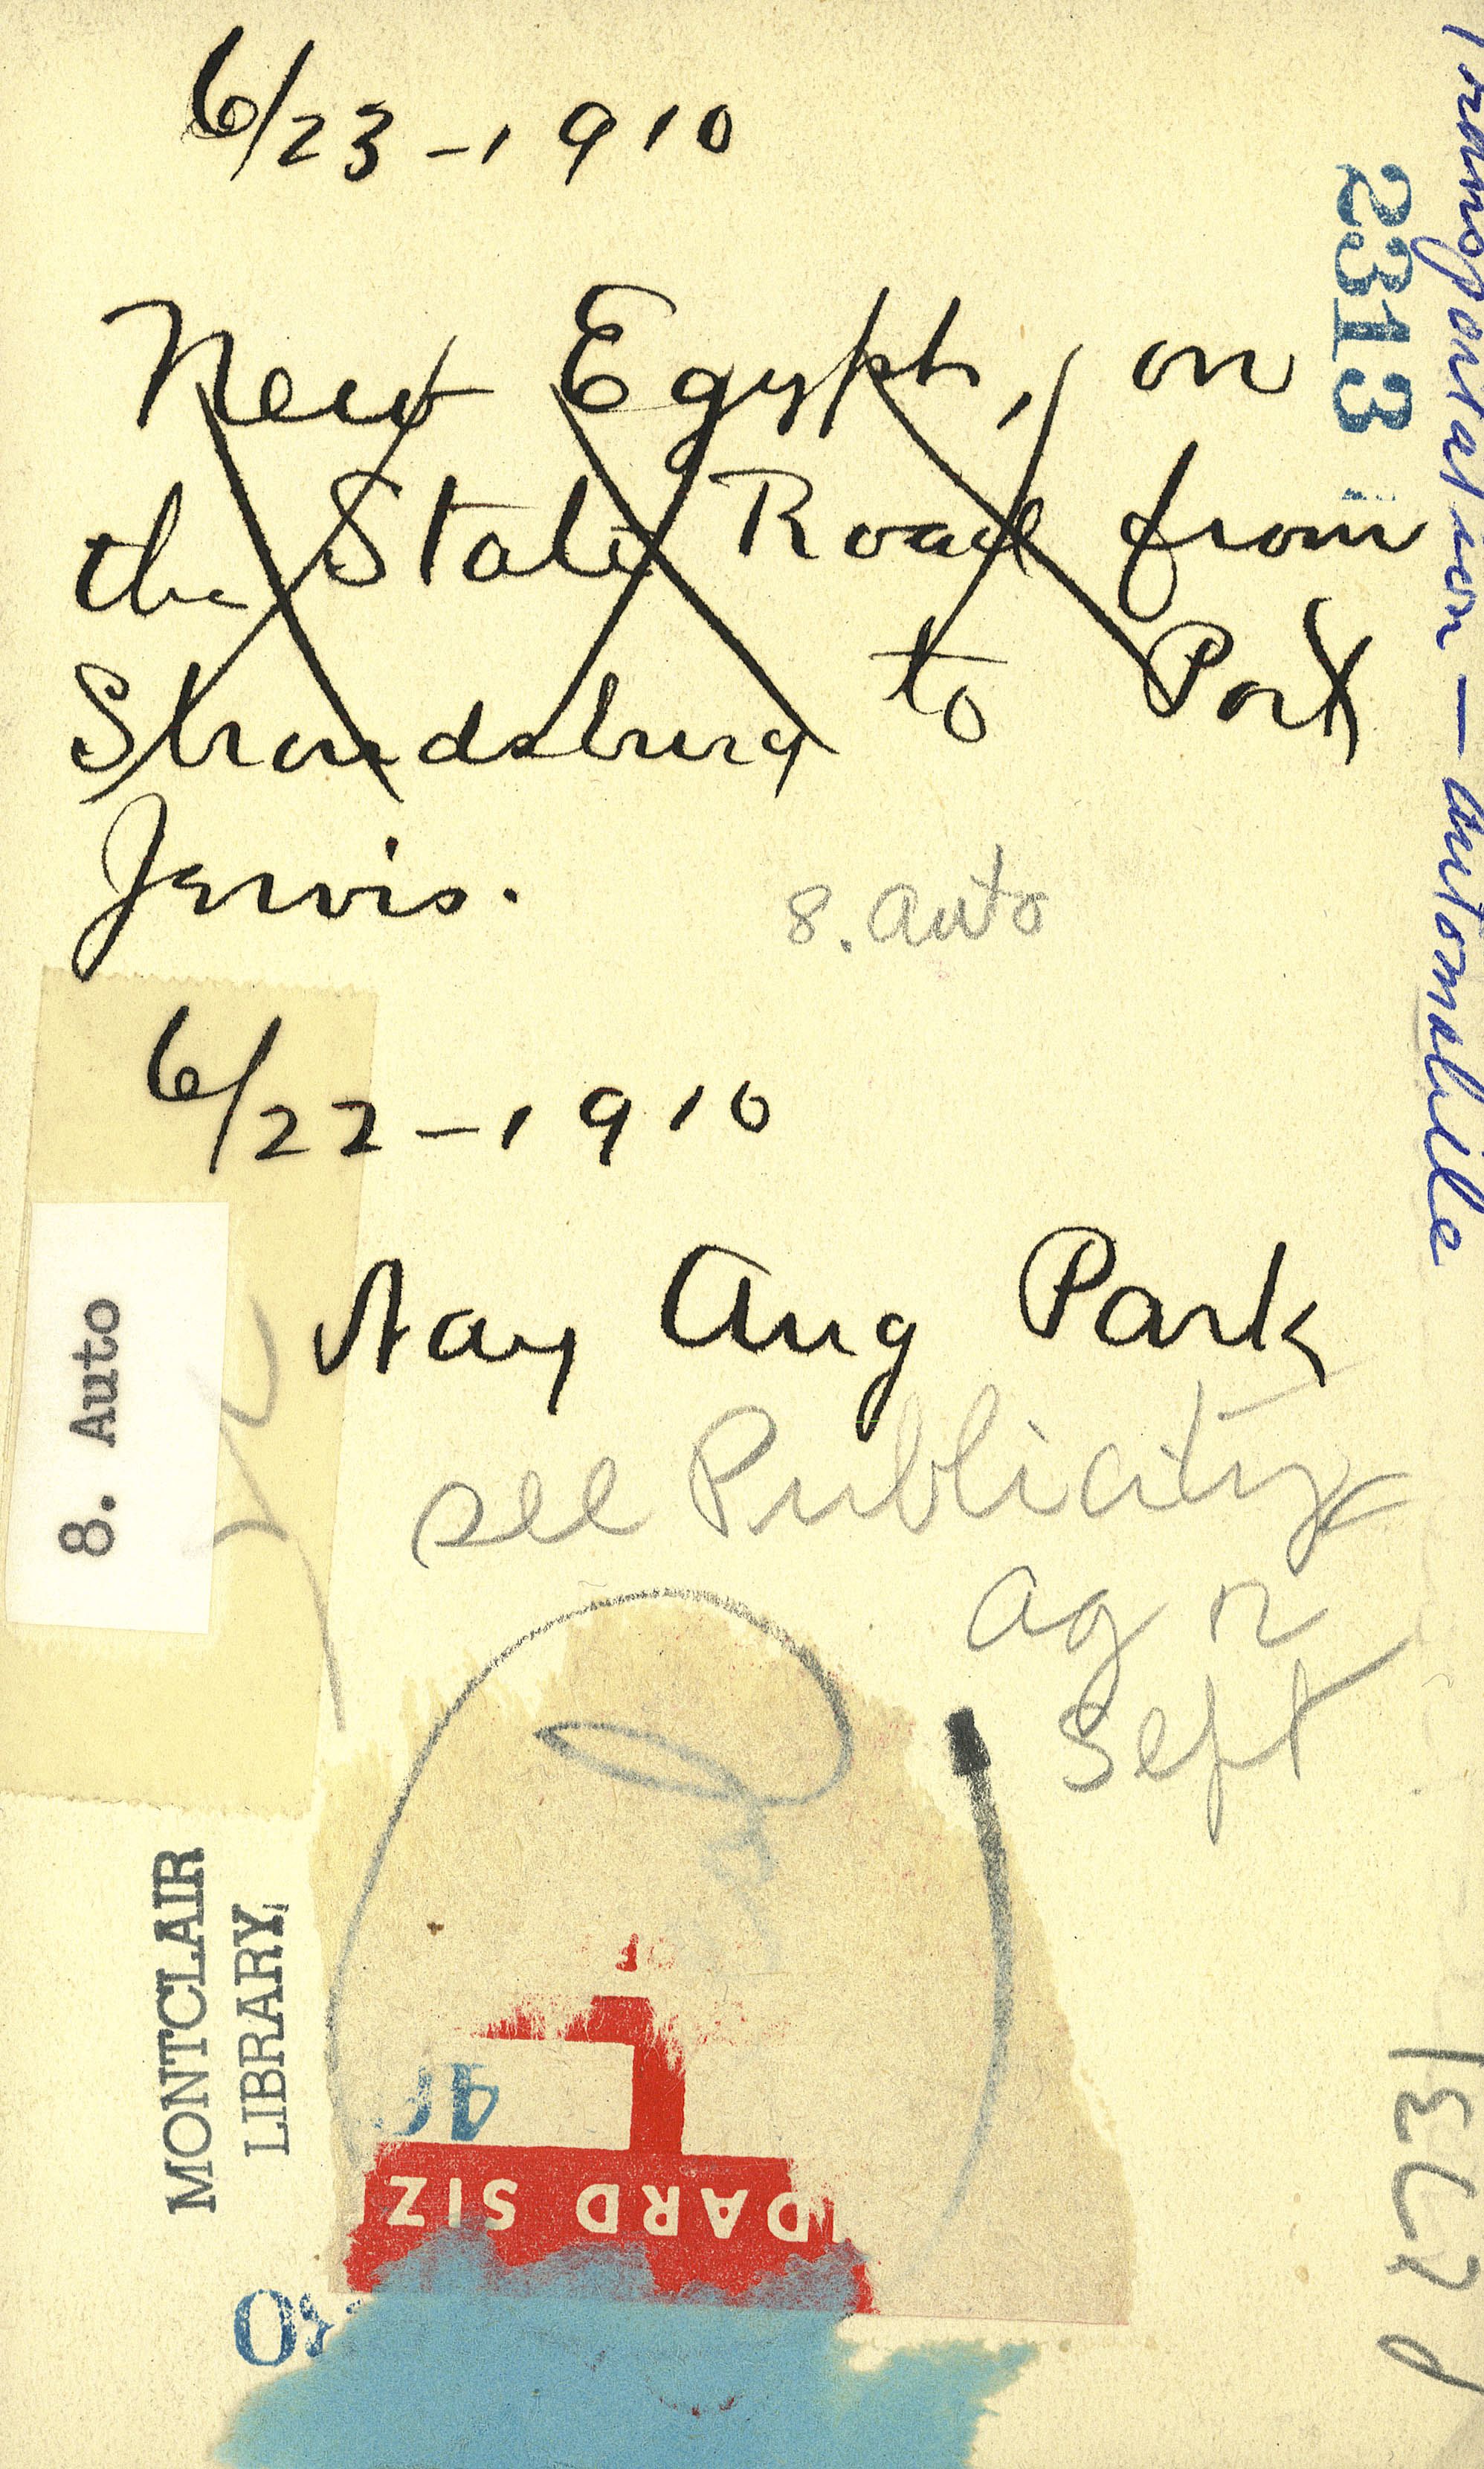 6/23-1910
New Egypt, on
the State Road from
Stroudsburg to Port
Jervis.
8. Auto
6/22-1910
Nay Aug Park
see Publicity
Sept
8. Auto
MONTCLAIR
LIBRARY
DARD SIZ
2313
Transportation — automobile